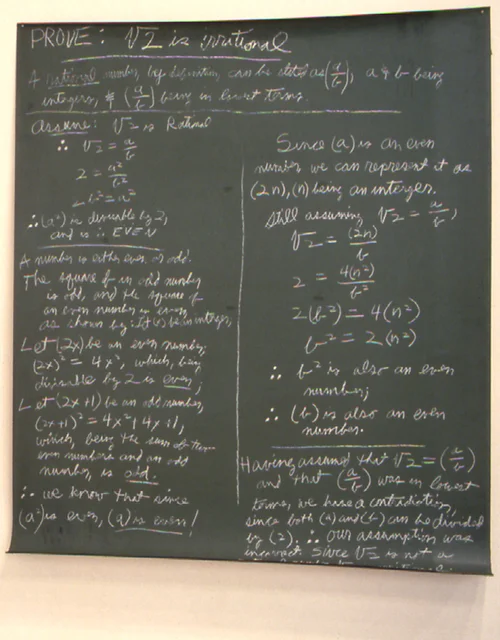 PROVE: √2 is irrational
A rational number, by definition, can be stated as (a/b), a & b being
integers, & (a/b) being in lowest terms.
Assume: √2 is Rational
∴ √2 = a/b
2 = a²/b²
2b² = a²
∴ (a²) is divisible by 2,
and is ∴ EVEN
A number is either even or odd.
The square of an odd number
is odd, and the square of
an even number is even,
as shown by: if (x) be an integer,
Let (2x) be an even number,
(2x)² = 4x², which, being
divisible by 2 is even;
Let (2x+1) be an odd number,
(2x+1)² = 4x²+4x+1,
which, being the sum of two
even numbers and an odd
number, is odd.
∴ we know that since
(a²) is even, (a) is even!
Since (a) is an even
number we can represent it as
(2n), (n) being an interger.
Still assuming √2 = a/b,
√2 = (2n)/b
2 = 4(n²)/b²
2(b²) = 4(n²)
b² = 2(n²)
∴ b² is also an even
number;
∴ (b) is also an even
number.
Having assumed that √2 = (a/b)
and that (a/b) was in lowest
terms, we have a contradiction,
since both (a) and (b) can be divided
by (2). ∴ our assumption was
incorrect. Since √2 is not a